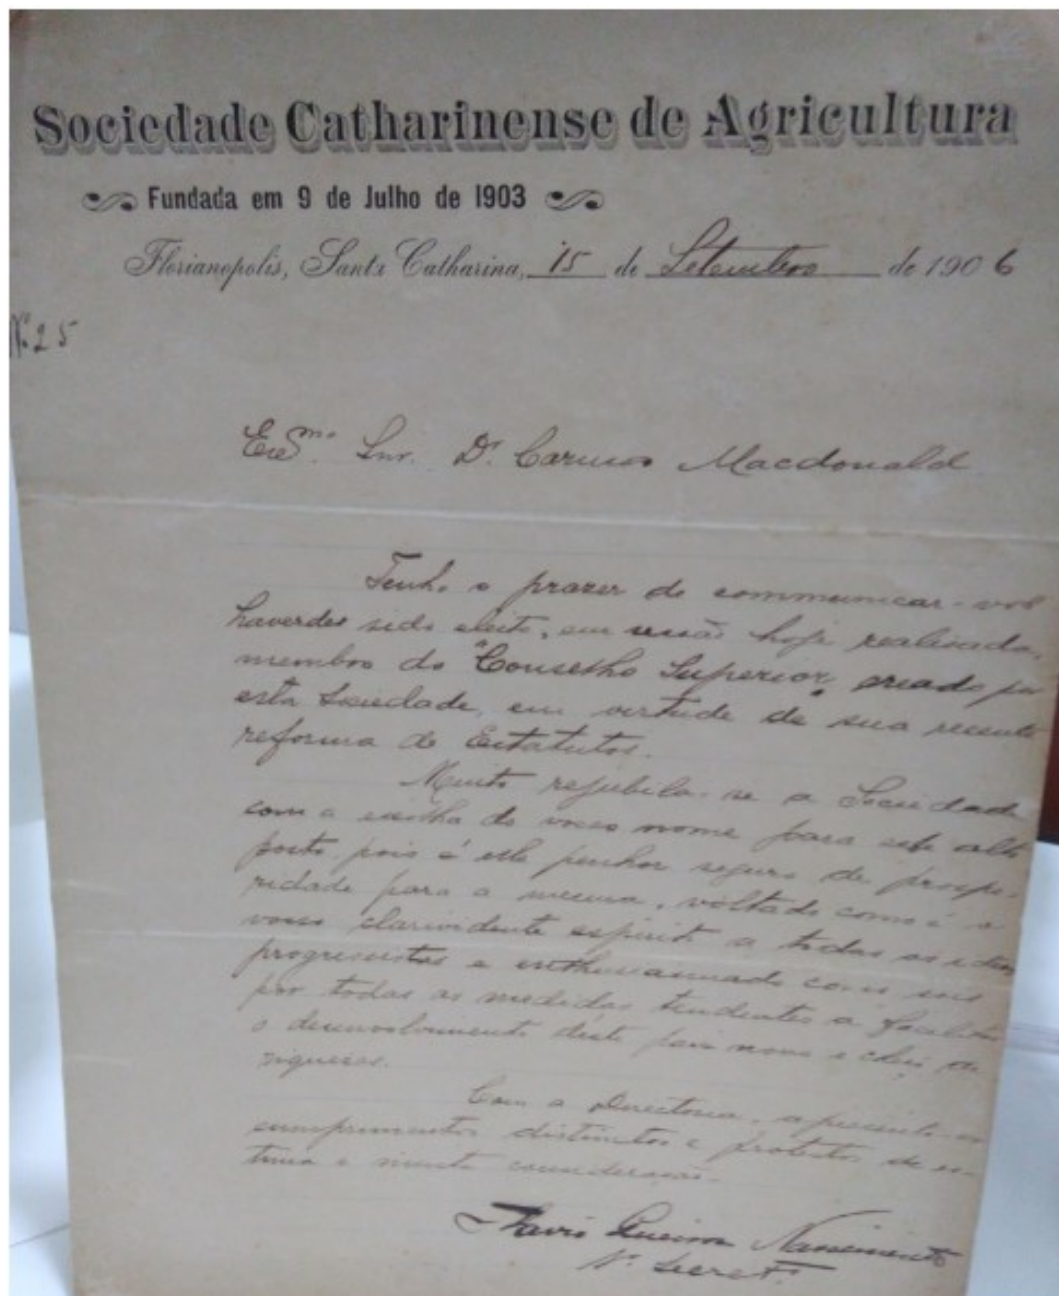 Sociedade Catharinense de Agricultura
Fundada em 9 de Julho de 1903
Florianopolis, Santa Catharina, 15 de Setembro de 1906
Nº 25
Exmº. Snr. Dr. Macdonald
Tenho o prazer de communicar-vos
haverdes sido eleito, em sessão hoje realisada,
membro do "Conselho Superior", creado por
esta Sociedade, em virtude de sua recente
reforma de Estatutos.
Muito rejubila-se a Sociedade
com a escolha do vosso nome para este alto
posto, pois é elle penhor seguro de prospe-
ridade para a mesma, voltado como é o
vosso clarividente espirito a todas as idéas
progressistas e enthusiasmado como sois
por todas as medidas tendentes a facilitar
o desenvolvimento deste paiz novo e cheio de
riquezas.
Com a Directoria, apresento-vos
cumprimentos distinctos e protestos de es-
tima e muita consideração.
Nascimento
1º Secretº.